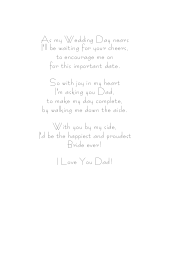 As my Wedding Day nears,
I'll be waiting for your cheers,
to encourage me on
for this important date.
So with joy in my heart
I'm asking you Dad,
to make my day complete,
by walking me down the aisle.
With you by my side,
I'd be the happiest and proudest
Bride ever!
I Love You Dad!